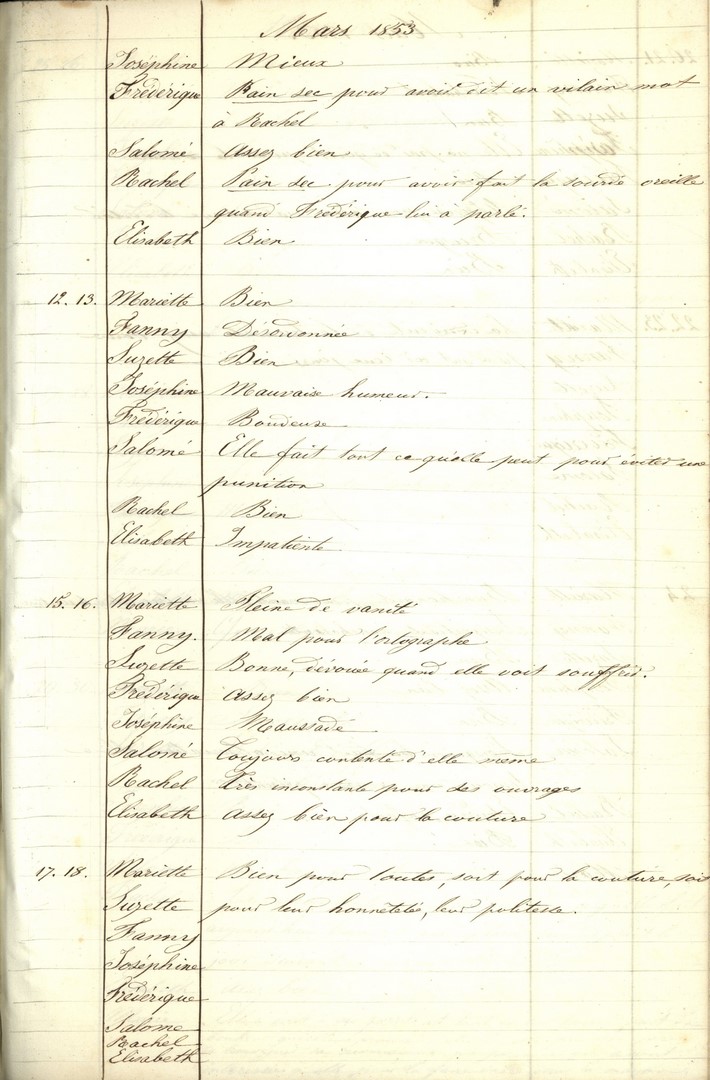 Mars 1853
Joséphine Mieux
Frédérique Pain sec pour avoir dit un vilain mot
à Rachel
Salomé Assez bien
Rachel Pain sec pour avoir fait la sourde oreille
quand Frédérique lui a parlé.
Elisabeth Bien
12. 13. Mariette Bien
Fanny Désordonnée
Suzette Bien
Joséphine Mauvaise humeur.
Frédérique Boudeuse
Salomé Elle fait tout ce qu'elle peut pour éviter une
punition
Rachel Bien
Elisabeth Impatiente
15. 16. Mariette Pleine de vanité
Fanny. Mal pour l'ortographe
Suzette Bonne, dévouée quand elle voit souffrir.
Frédérique Assez bien
Joséphine Maussade
Salomé Toujours contente d'elle même
Rachel Très inconstante pour des ouvrages
Elisabeth Assez bien pour la couture
17. 18. Mariette Bien pour toutes, soit pour la couture, soit
Suzette pour leur honnêteté, leur politesse.
Fanny
Joséphine
Frédérique
Salome
Rachel
Elisabeth